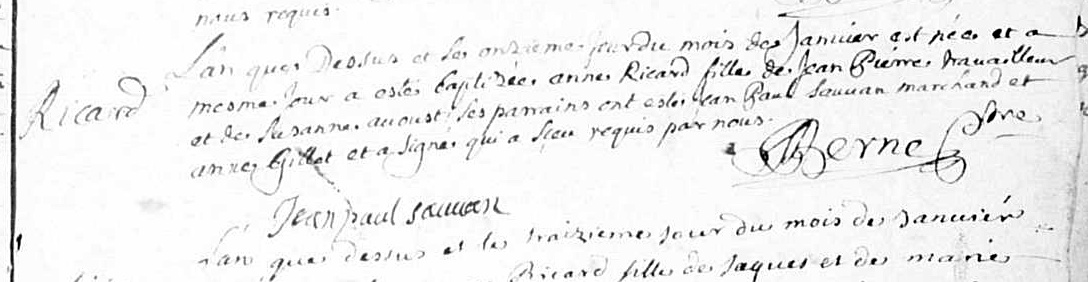 nous requis.
L'an que Dessus et le onzieme jour du mois de Janvier est née et a
Ricard
mesme jour a esté baptizée anne Ricard fille de Jean Pierre travailleur
et de Susanne avoust ses parrains ont esté jean Paul sauvan marchand et
anne Gillet et a signé qui a sceu requis par nous.
Berne
Jean paul sauvan
L'an que dessus et le traizieme jour du mois de Janvier
Ricard fille de Jaques et de marie